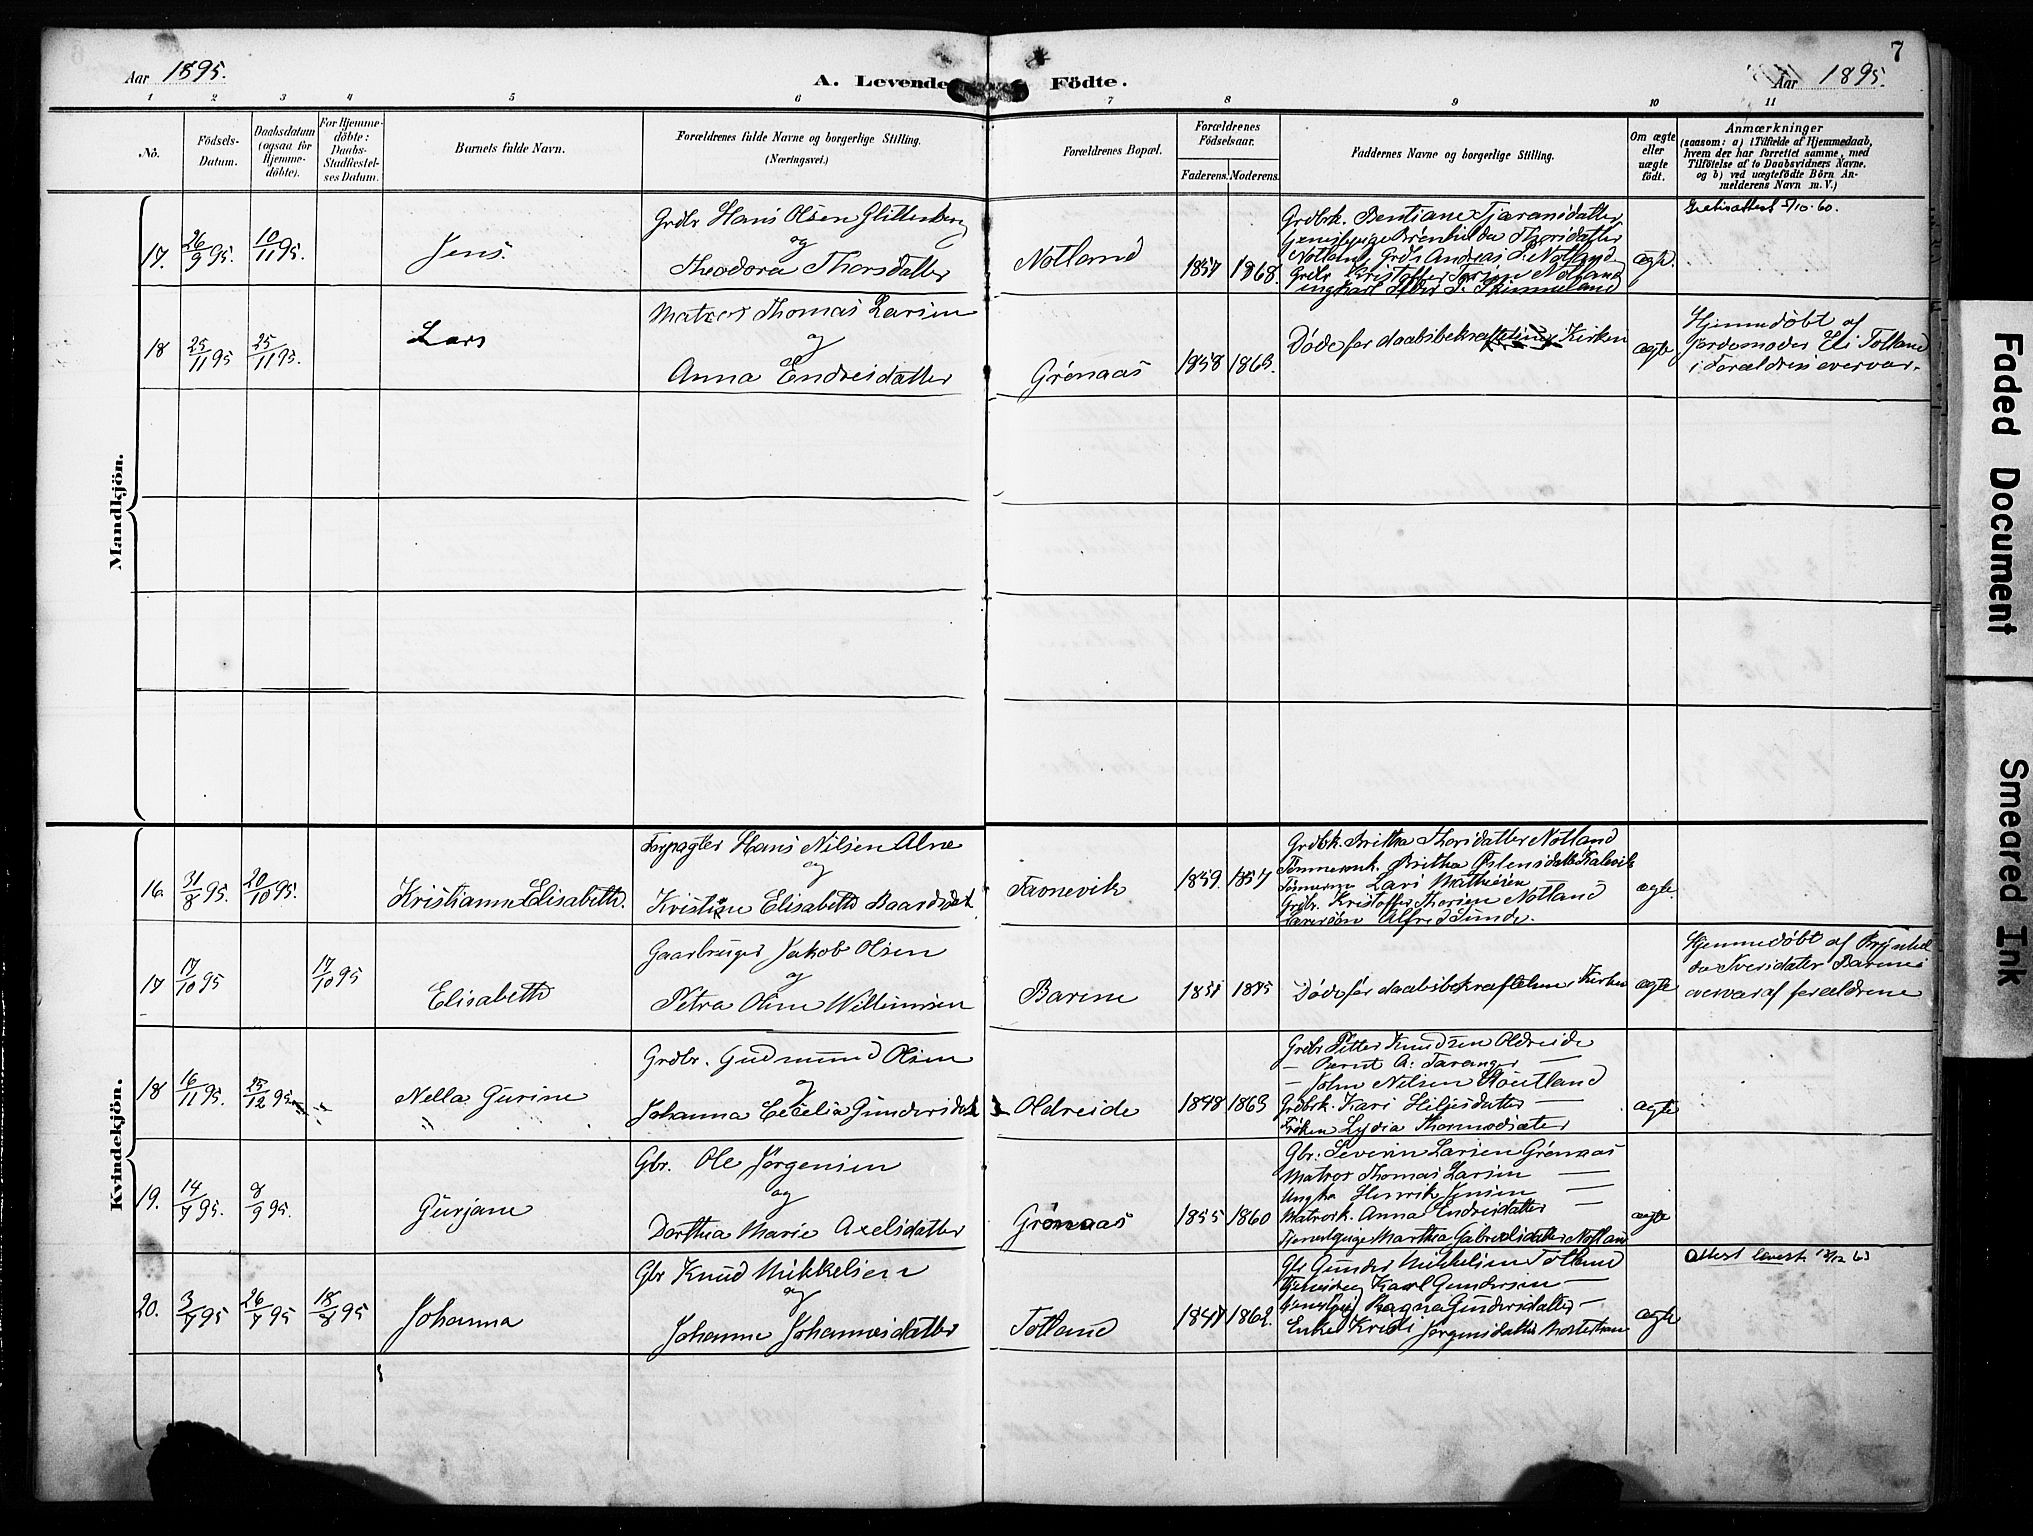 7
Aar 1895.
A. Levende Födte.
Aar 1895.
1 2 3 4 5 6 7 8 9 10 11
No.
Födsels-Datum.
Daabsdatum (ogsaa for Hjemme-döbte).
For Hjemme-döbte: Daabs-Stadfæstel-ses Datum.
Barnets fulde Navn.
Forældrenes fulde Navne og borgerlige Stilling.
(Næringsvei.)
Forældrenes Bopæl.
Forældrenes Födselsaar.
Faderens. Moderens.
Faddernes Navne og borgerlige Stilling.
Om ægte eller uægte födt.
Anmærkninger
(saasom: a) i Tilfælde af Hjemmedaab, hvem der har forrettet samme, med Tilföielse af to Daabsvidners Navne, og b) ved uægtefödte Börn An-melderens Navn m. V.)
Mandkjön.
17. 26/9 95. 10/11 95. Jens.
Grdbr Hans Olsen Glittenberg
og
Theodora Thorsdatter
Notland 1857 1868.
Grdbrk. Bentiane Tjaransdatter
Notland, Grdb. Andreas P. Notland
Grdbr Kristoffer Torsen Notland
ægte.
18 25/11 95 25/11 95. Lars
Matros Thomas Larsen
og
Anna Endresdatter
Grönaas 1858 1863.
Døde før daabsbekræftelsen i Kirken
ægte
Hjemmedøbt af
Jordemoder Eli Totland
i Forældrenes overvær.
Kvindekjön.
16. 31/8 95. 20/10 95. Kristianne Elisabeth.
Forpagter Hans Nilsen Alne
og
Kristine Elisabeth Baardsdat
Favnevik 1859. 1857
Grdbrk. Britha Thorsdatter Notland
Tømmermk. Britha Østensdatter Kalevik
Tømmerm Lars Mathiesen
Grdbr. Kristoffer Thorsen Notland
Alfred Sunde.
ægte.
17 17/10 95 17/10 95 Elisabeth
Gaardbruger Jakob Olsen
og
Petra Oline Willumsen
Barene 1851 1875
Døde før daabsbekræftelsen i Kirken
ægte
Hjemmedøbt af Brynhil
da Iversdatter Barene i
overvær af forældrene
18 16/11 95. 25/12 95 Nella Gurine
Grdbr. Gudmund Olsen
og
Johanna Cecelia Gundersdat
Oldreide 1848 1863
Grdbr Petter Knudsen Oldreide
— Bernt A. Taranger —
— John Nilsen Støutland
Grdbrk. Kari Hiljesdatter —
Frøken Lydia Thormodsæter
ægte
19. 14/7 95. 8/9 95. Gurjane
Gbr. Ole Jørgensen
og
Dorthea Marie Axelsdatter
Grönaas 1855 1860
Gbr. Severin Larsen Grönaas
Matros Thomas Larsen —
Ungka Henrik Jensen —
Matrosk. Anna Endresdatter —
Tjenestpige Marthea Gabrielsdatter Notland
ægte
20. 3/7 95 26/7 95 18/8 95 Johanna
Gbr Knud Mikkelsen
og
Johanne Johannesdatter
Totland 1847 1862.
Gbr Gunder Mikkelsen Totland
Karl Gundersen —
Ragna Gundersdatter —
Enke Kristi Jørgensdatter Mosterhavn
ægte
Attest levesk 12/12 63
Faded Document
Smeared Ink